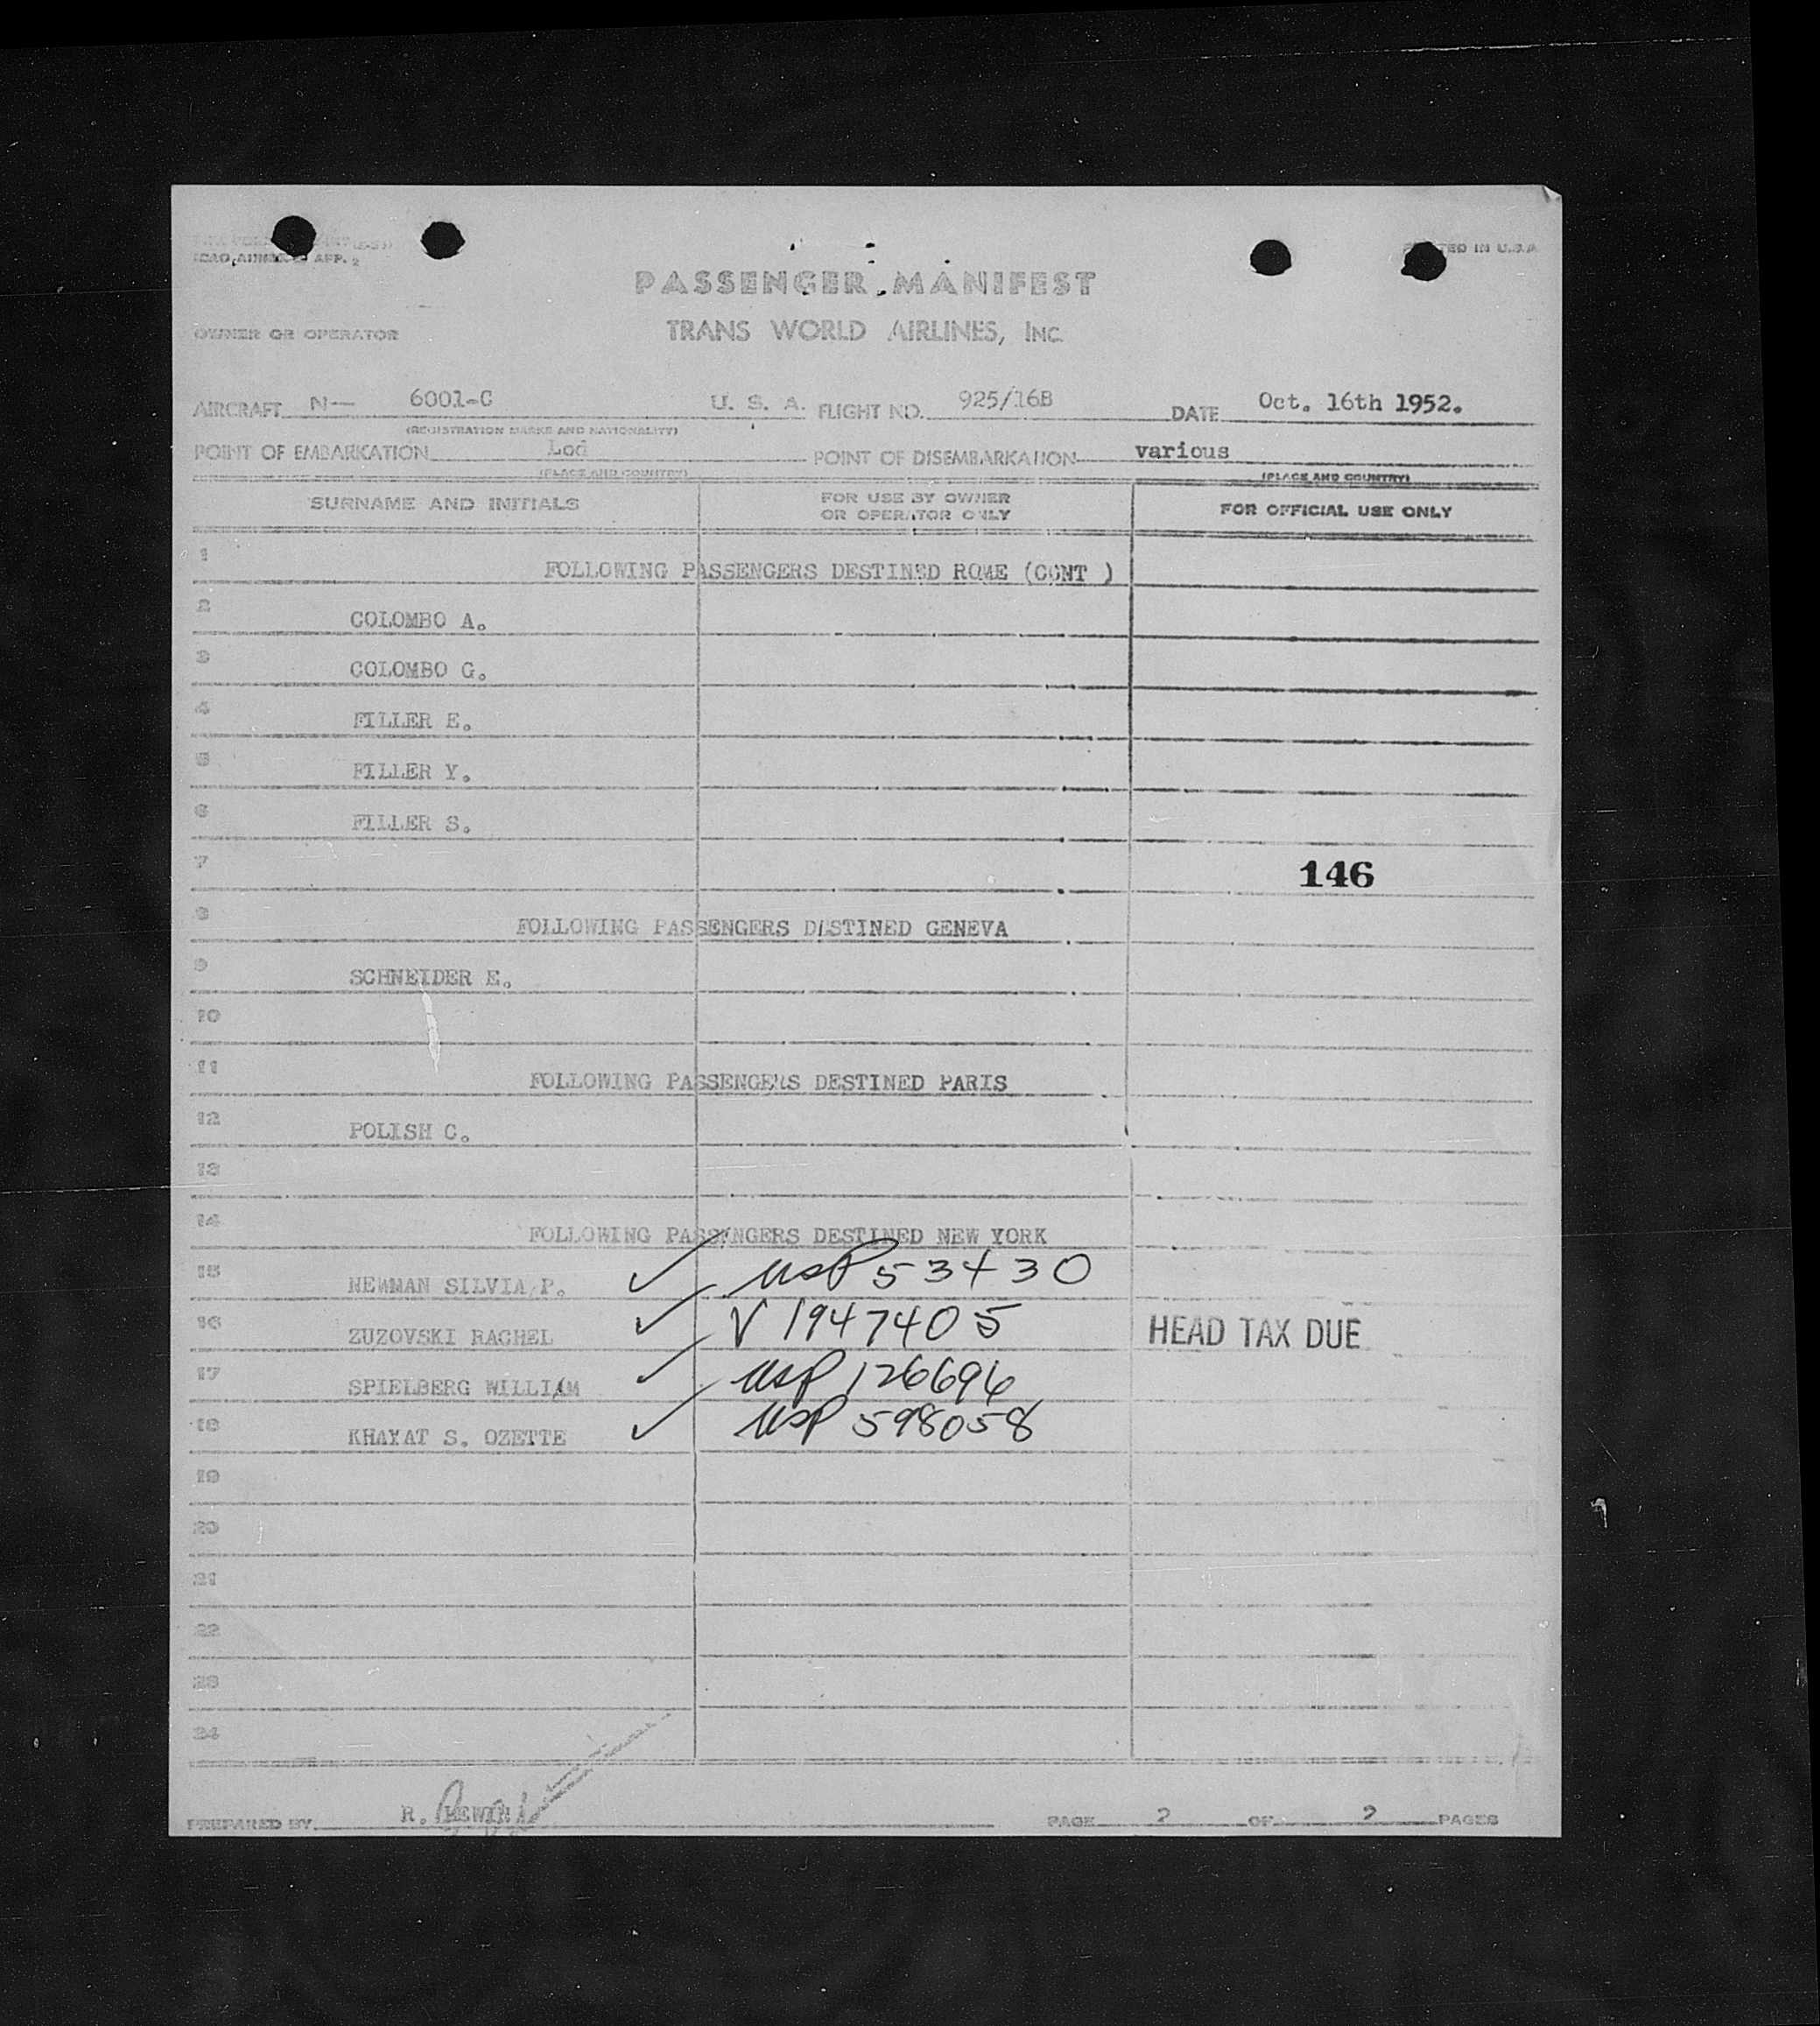 ICAO, ANNEX 9 APP. 2
PRINTED IN U.S.A.
PASSENGER MANIFEST
OWNER OR OPERATOR
TRANS WORLD AIRLINES, INC.
AIRCRAFT N— 6001-C U. S. A. FLIGHT NO. 925/16B DATE Oct. 16th 1952.
(REGISTRATION MARKS AND NATIONALITY)
POINT OF EMBARKATION Lod POINT OF DISEMBARKATION various
(PLACE AND COUNTRY) (PLACE AND COUNTRY)
SURNAME AND INITIALS FOR USE BY OWNER OR OPERATOR ONLY FOR OFFICIAL USE ONLY
1 FOLLOWING PASSENGERS DESTINED ROME (CONT )
2 COLOMBO A.
3 COLOMBO G.
4 FILLER E.
5 FILLER Y.
6 FILLER S.
7 146
8 FOLLOWING PASSENGERS DESTINED GENEVA
9 SCHNEIDER E.
10
11 FOLLOWING PASSENGERS DESTINED PARIS
12 POLISH C.
13
14 FOLLOWING PASSENGERS DESTINED NEW YORK
15 NEWMAN SILVIA P. ✓ USP 53430
16 ZUZOVSKI RACHEL ✓ V 1947405 HEAD TAX DUE
17 SPIELBERG WILLIAM ✓ USP 126696
18 KHAYAT S. OZETTE ✓ USP 598058
19
20
21
22
23
24
PREPARED BY R. PAGE 2 OF 2 PAGES